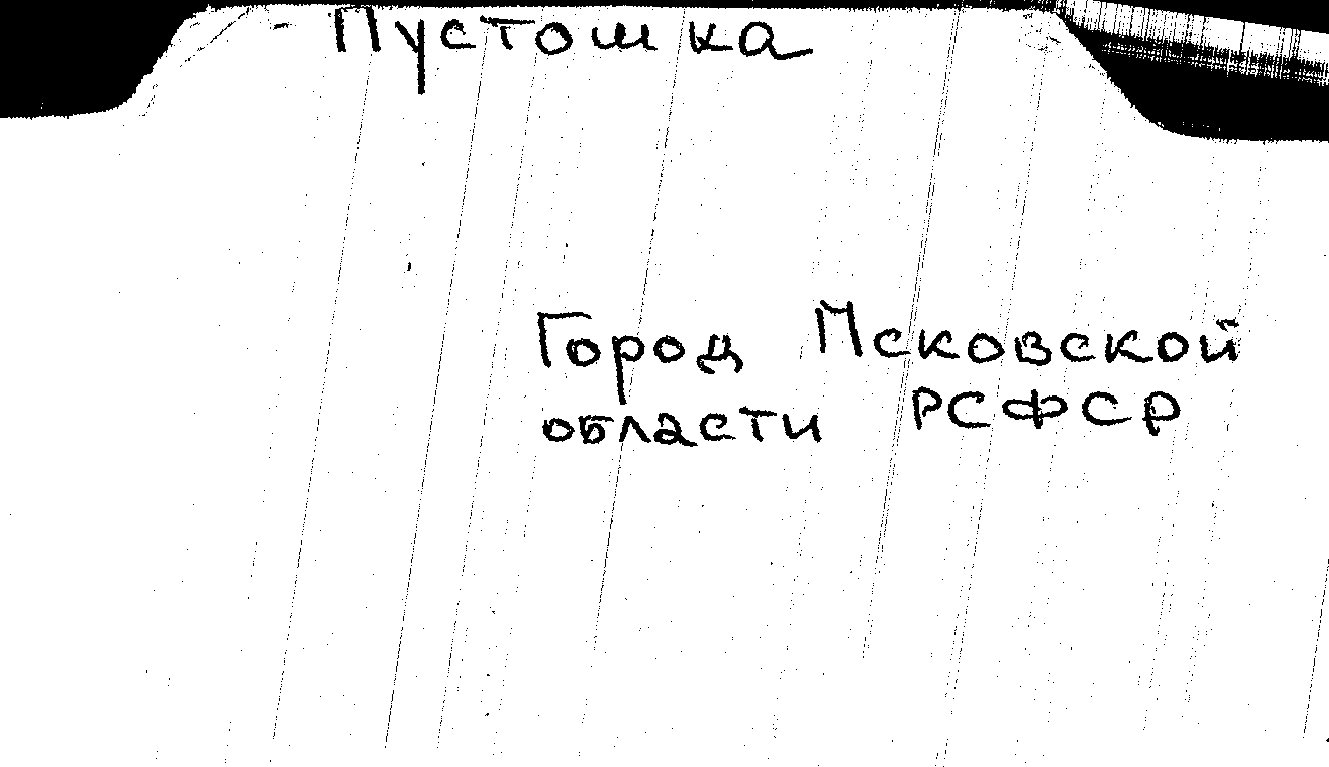 Пустошка
Город Псковской
области РСФСР